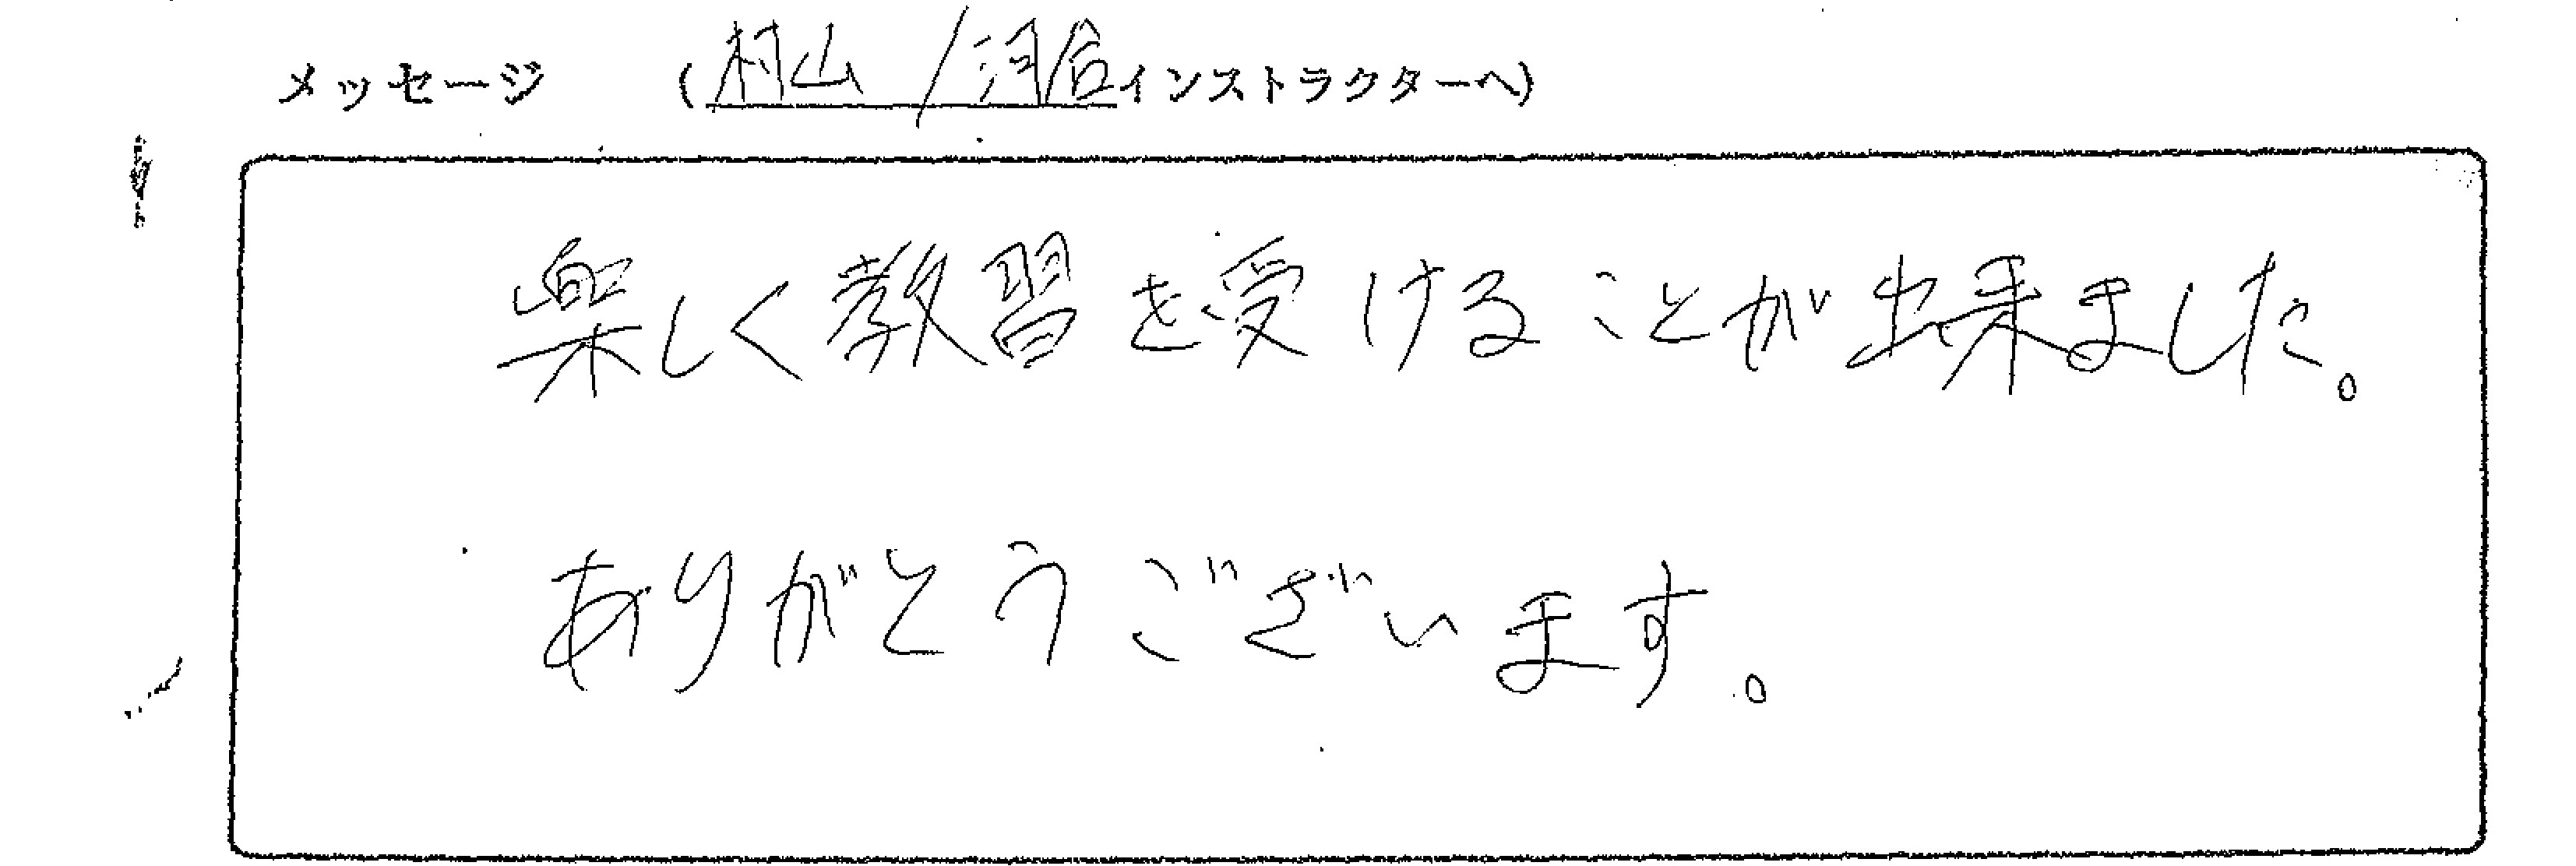 メッセージ (村山/河合インストラクターへ)
楽しく教習を受けることが出来ました。
ありがとうございます。